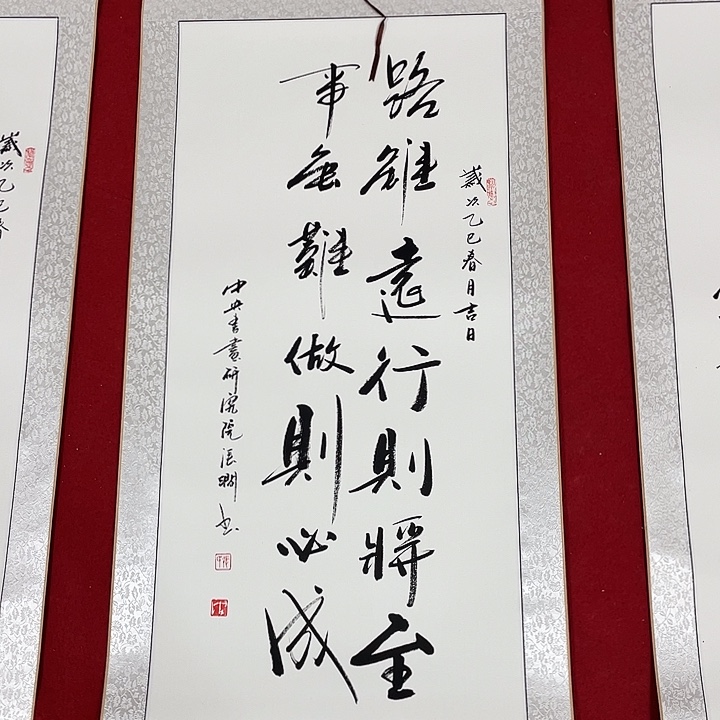 歲次乙巳春月吉日
路雖遠行則將至
事無難做則必成
中央書畫研究院張 書
歲次乙巳春